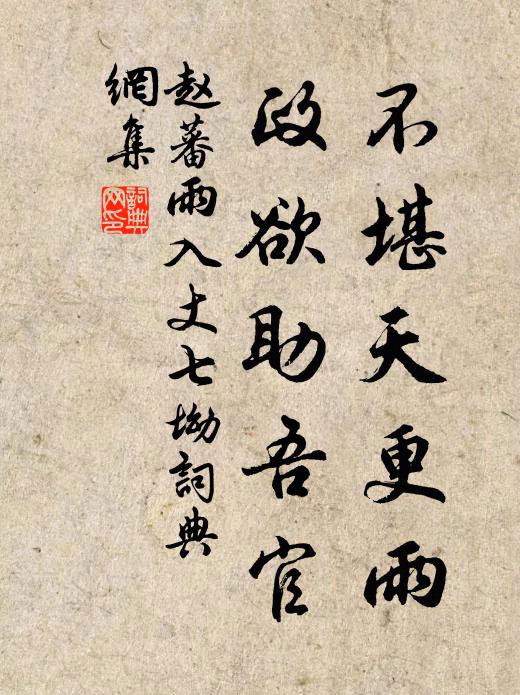 不堪天更雨
政欲助吾官
赵蕃雨入丈七坳詞典
網集
詞典网印